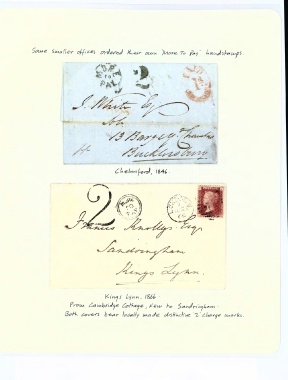 Some smaller offices ordered their own 'More To Pay' handstamps.
MORE
TO
PAY
2
J. White Esq
13 Barge Yd
Bucklersbury
Chelmsford, 1846.
2
Francis Knollys Esq
Sandringham
Kings Lynn.
Kings Lynn, 1866
From Cambridge Cottage, Kew to Sandringham
Both covers bear locally made distinctive '2' charge marks.